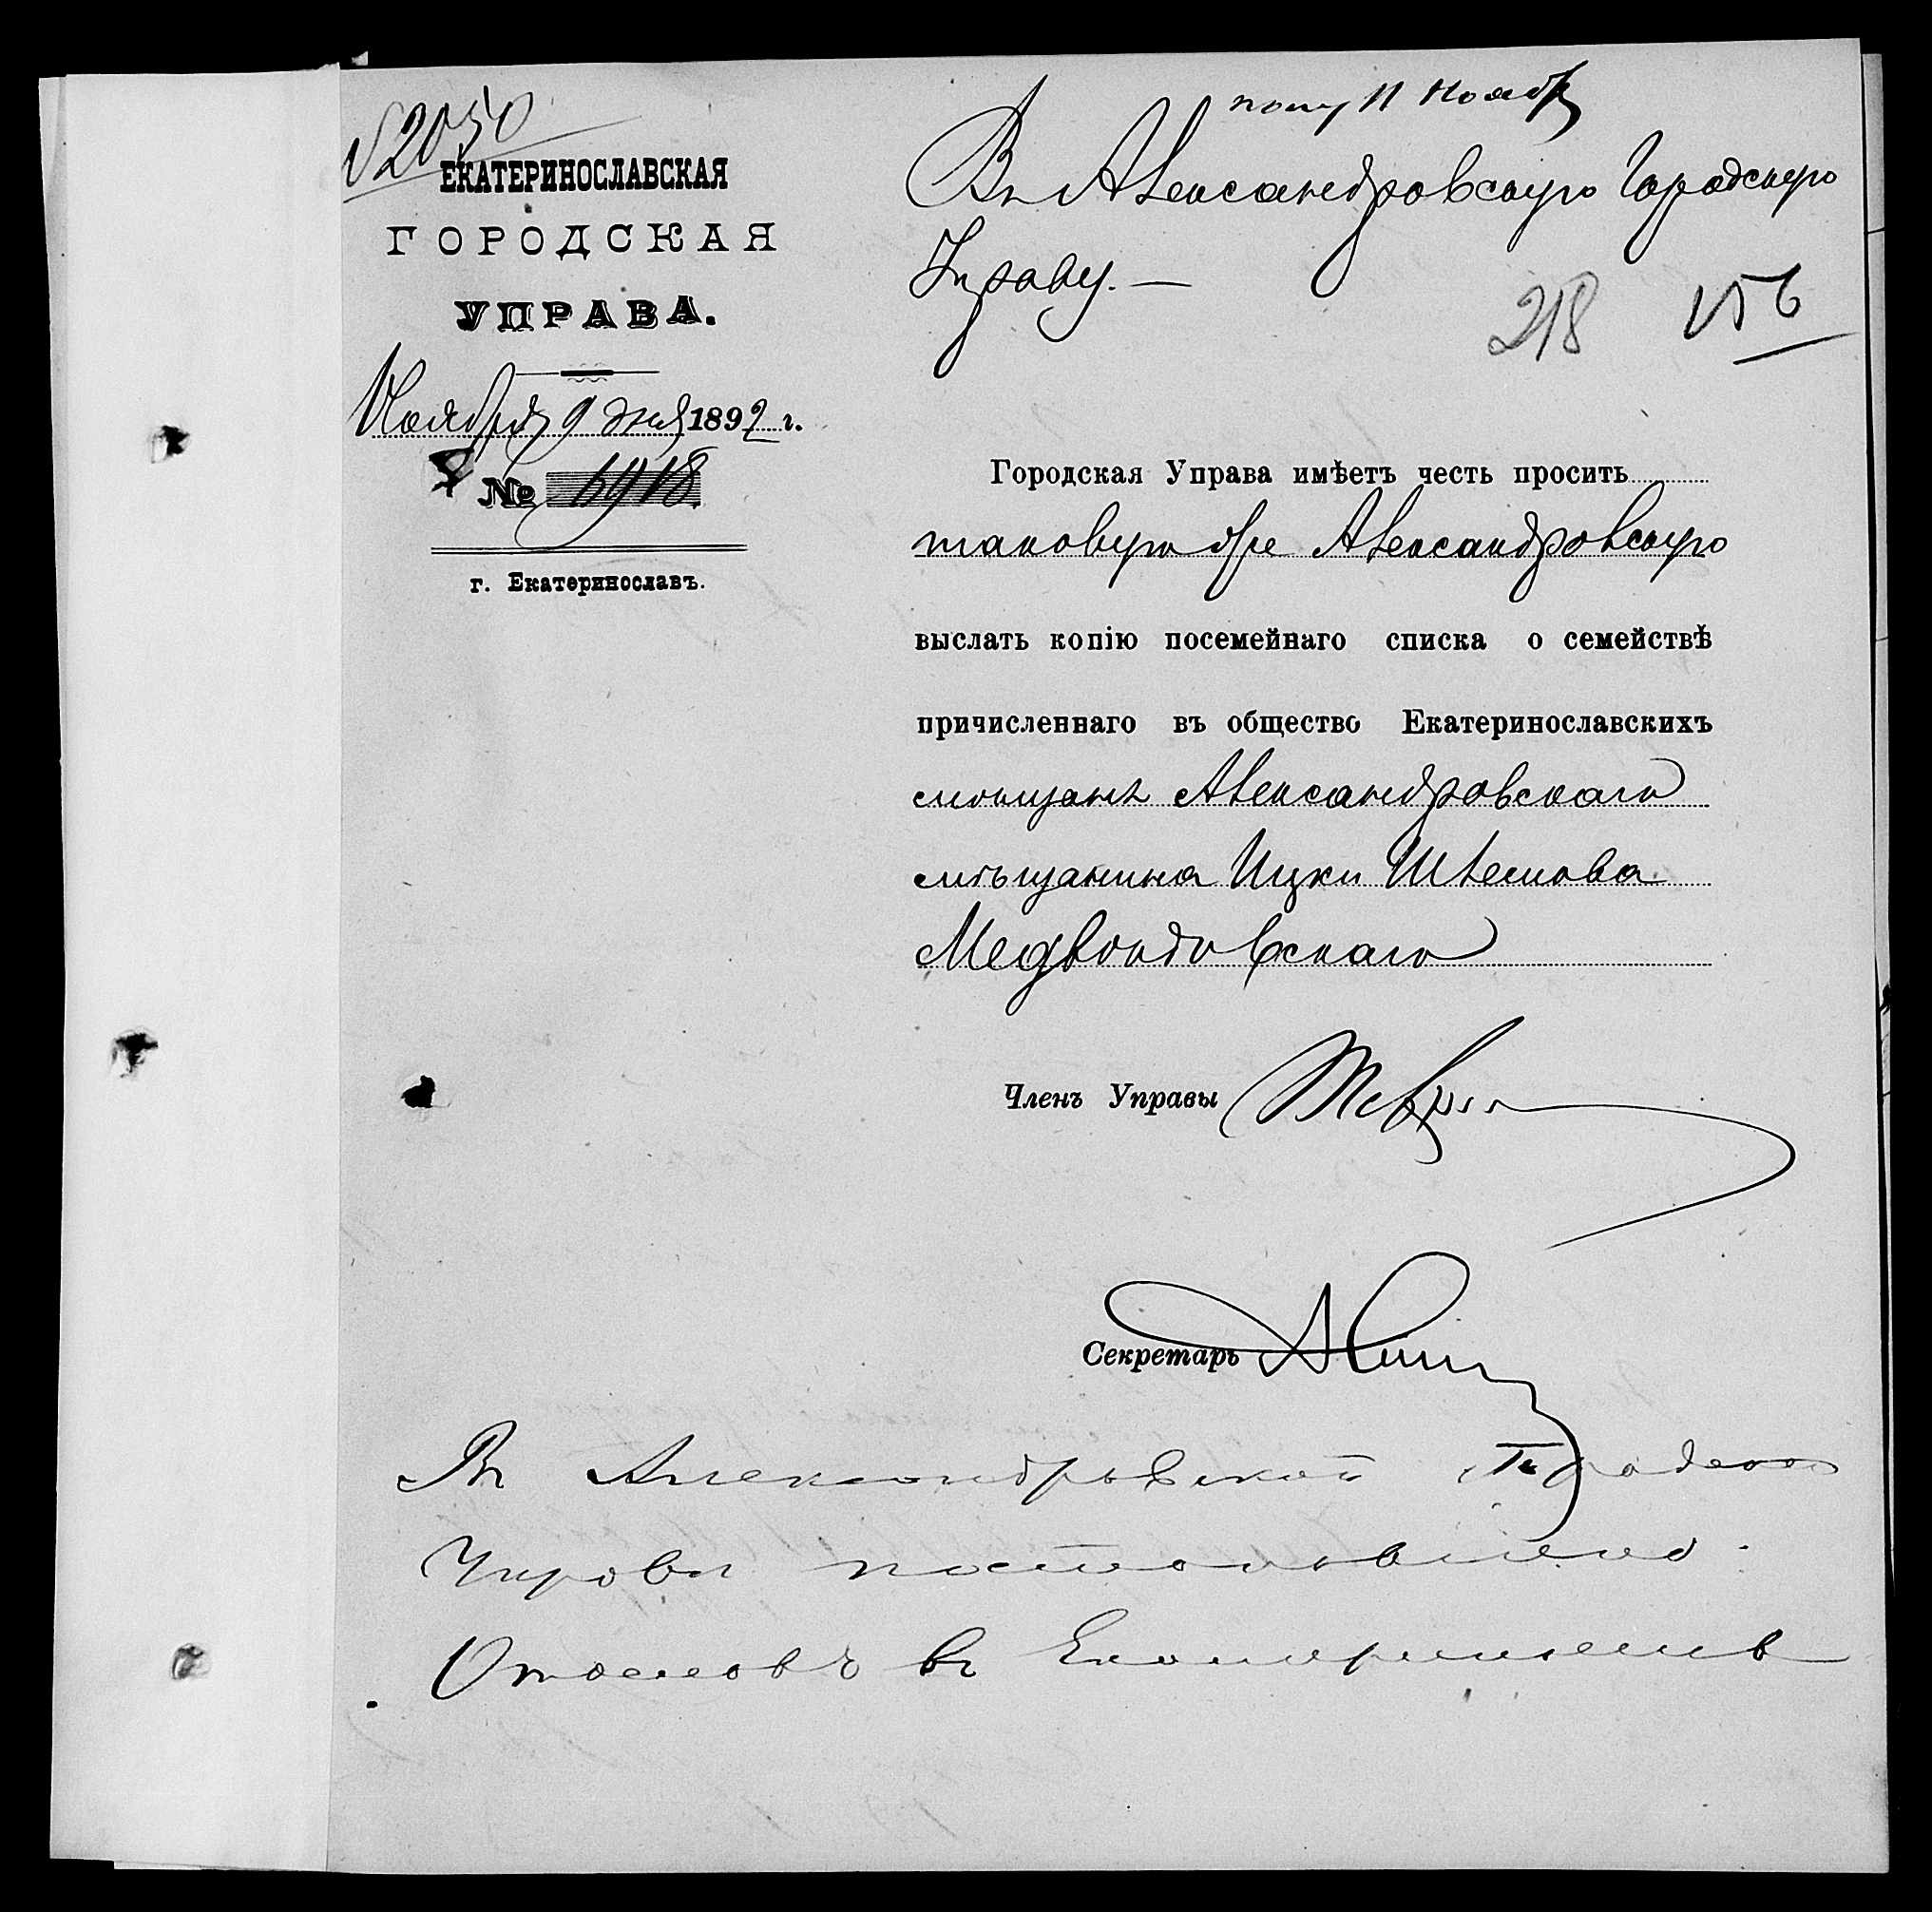 № 2050
полу 11 Нояб
ЕКАТЕРИНОСЛАВСКАЯ
ГОРОДСКАЯ
УПРАВА.
Ноября 9 дня 1892 г.
№ 6918
г. Екатеринославъ.
Въ Александровскую Городскую
Управу. —
218 156
Городская Управа имѣетъ честь просить
таковую же Александровскую
выслать копію посемейнаго списка о семействѣ
причисленнаго въ общество Екатеринославскихъ
мѣщанъ Александровскаго
мѣщанина Ицки Шлемова
Медвѣдовскаго
Членъ Управы
Секретарь
Въ Александровской Городской
Управѣ постановлено:
въ